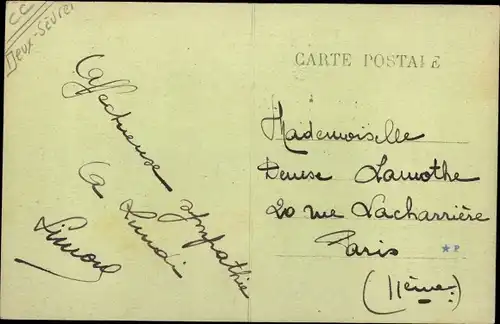 CC
Deux-Sèvres
CARTE POSTALE
Affectueuse sympathie
A Lundi
Simone
Mademoiselle
Denise Lamothe
20 rue Lacharrière
Paris
(11ème)